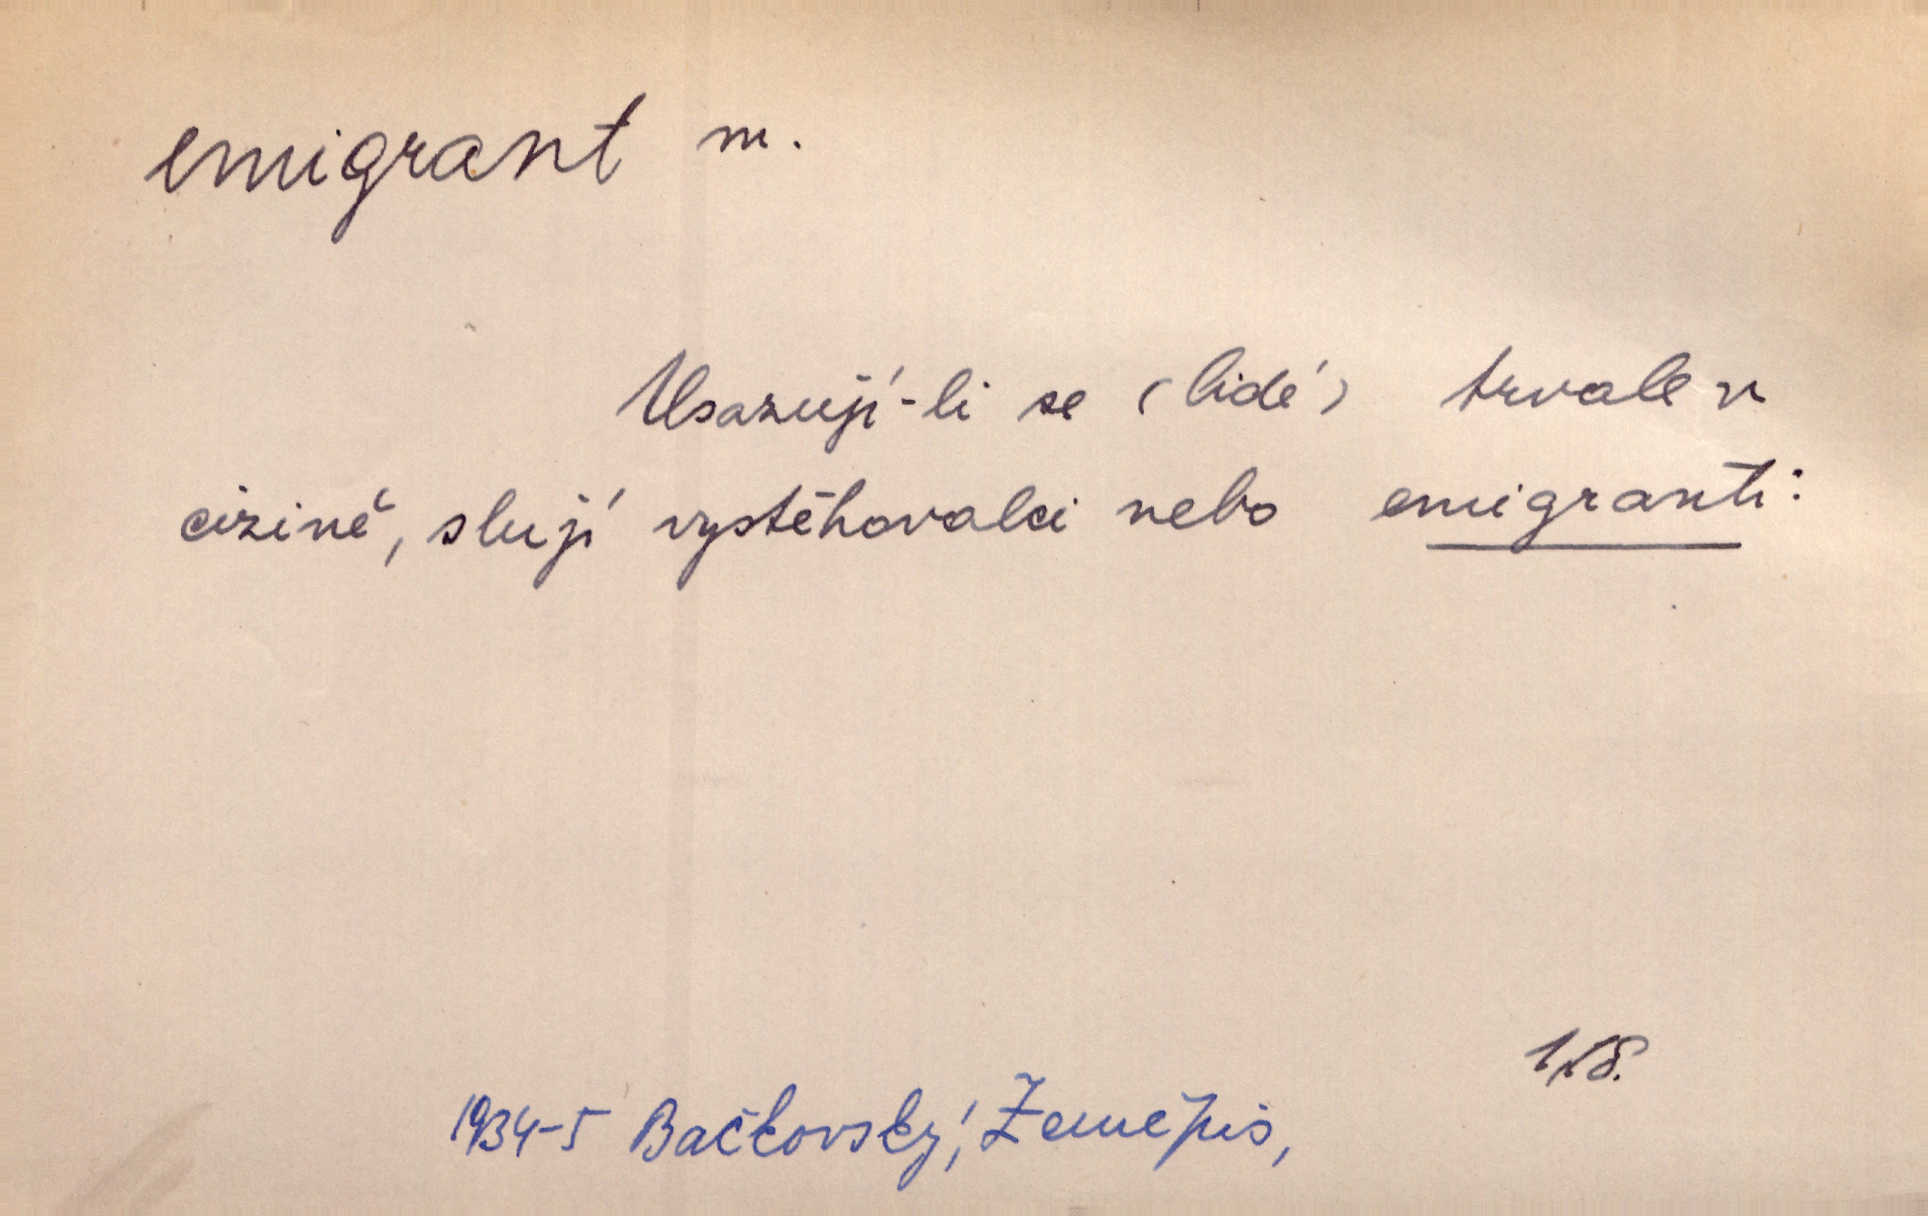 emigrant m.
Usazují-li se (lidé) trvale v
cizině, slují vystěhovalci nebo emigranti:
1934-5 Bačkovský, Zeměpis,